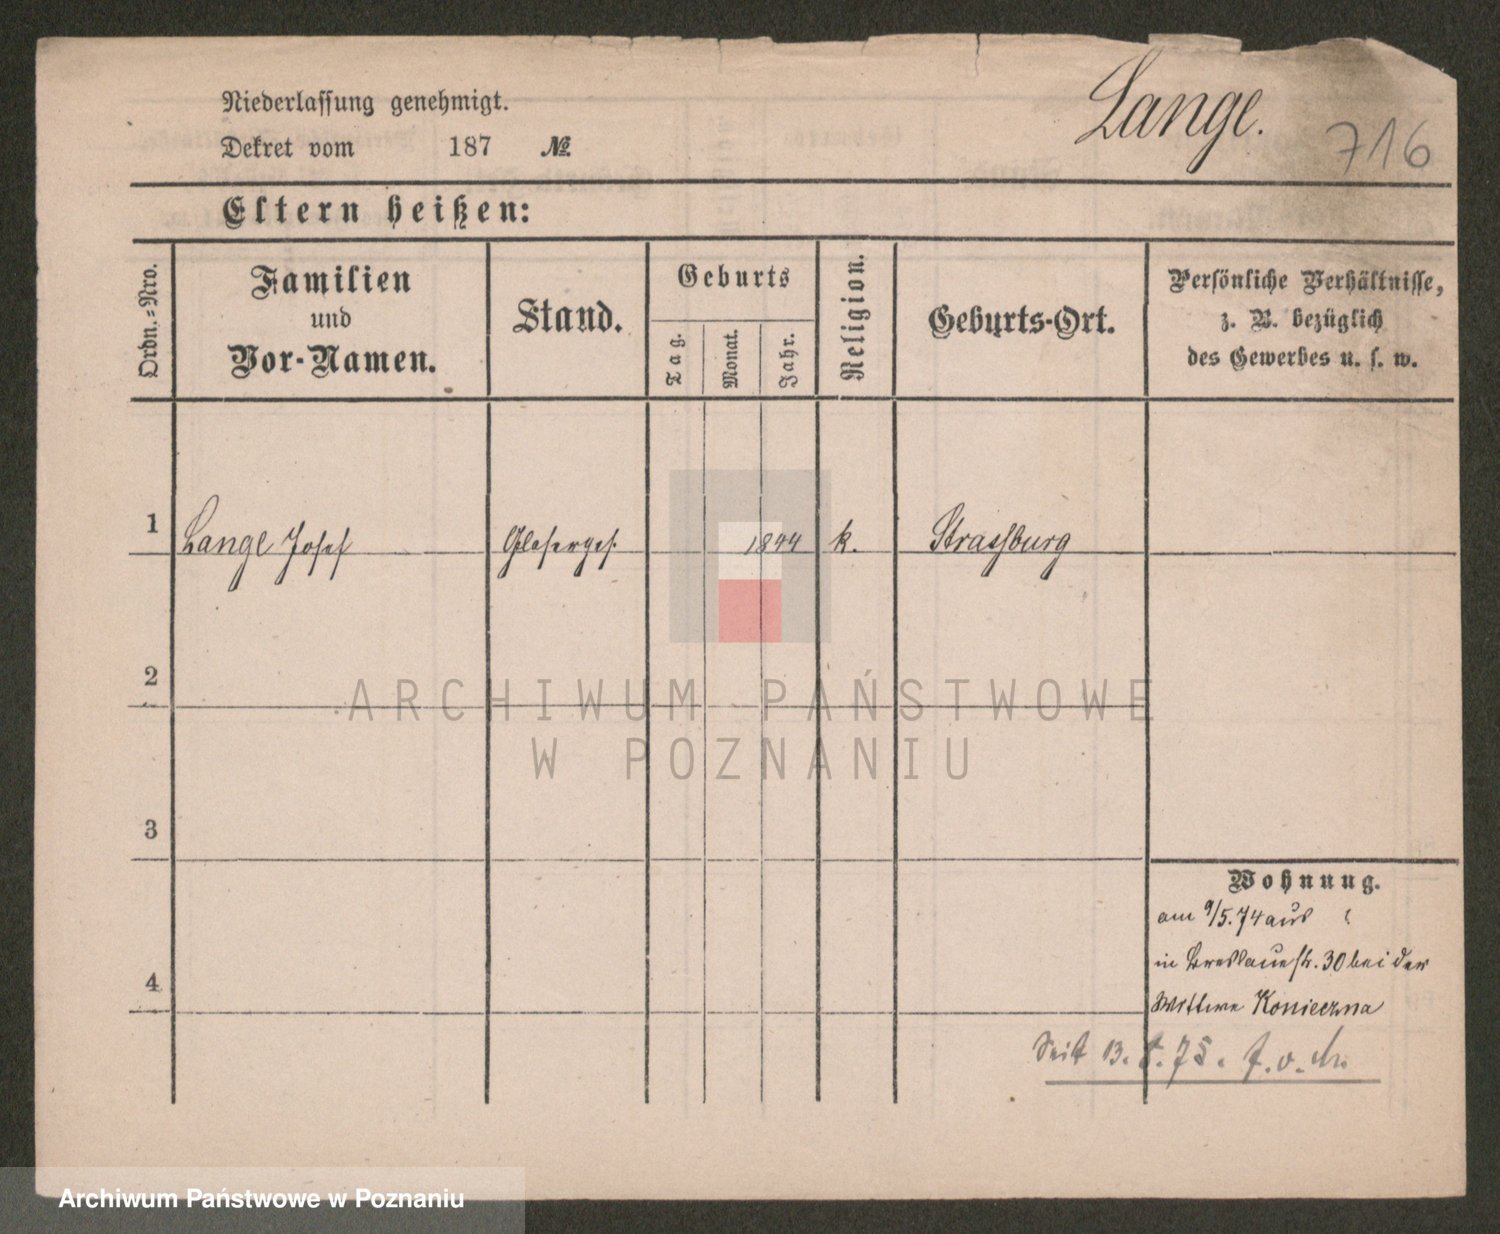 Niederlassung genehmigt.
Dekret vom 187 №
Lange.
716
Eltern heißen:
Ordn.-Nro.
Familien
und
Vor-Namen.
Stand.
Geburts
Tag.
Monat.
Jahr.
Religion.
Geburts-Ort.
Persönliche Verhältnisse,
z. B. bezüglich
des Gewerbes u. s. w.
1 Lange Josef Glaserges. 1844 k. Strassburg
2
ARCHIWUM PAŃSTWOWE
W POZNANIU
3
Wohnung.
am 9/5.74 aus ?
in Breslauerstr. 30 bei der
4
Wittwe Konieczna
Seit 13. 75.
Archiwum Państwowe w Poznaniu